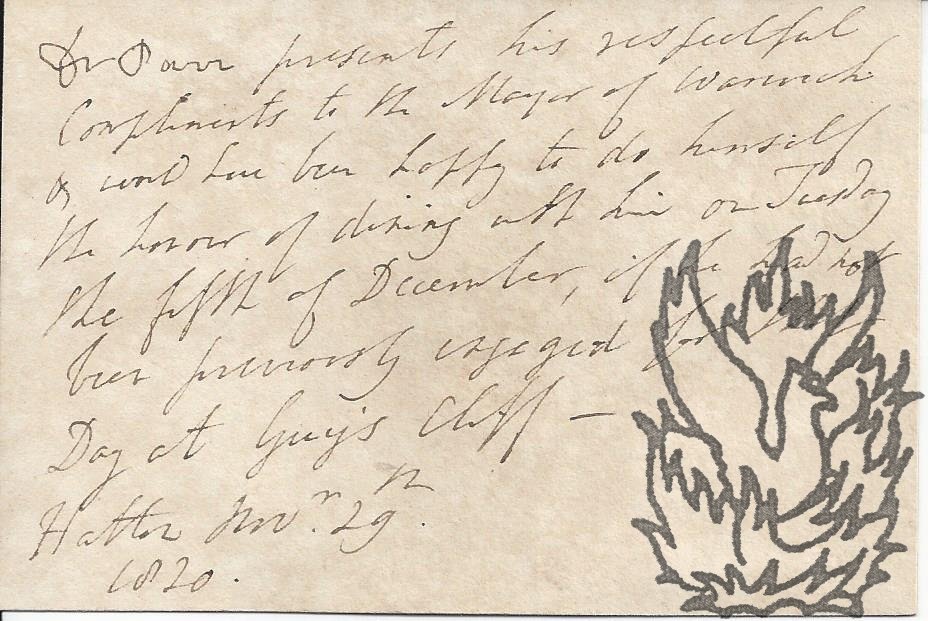 Dr Parr presents his respectful
Compliments to the Mayor of Warwick
& would have been happy to do himself
the honour of dining with him on Tuesday
the fifth of December, if he had not
been previously engaged for that
Day at Guy's Cliff —
Hatton Novr. 29th.
1820.